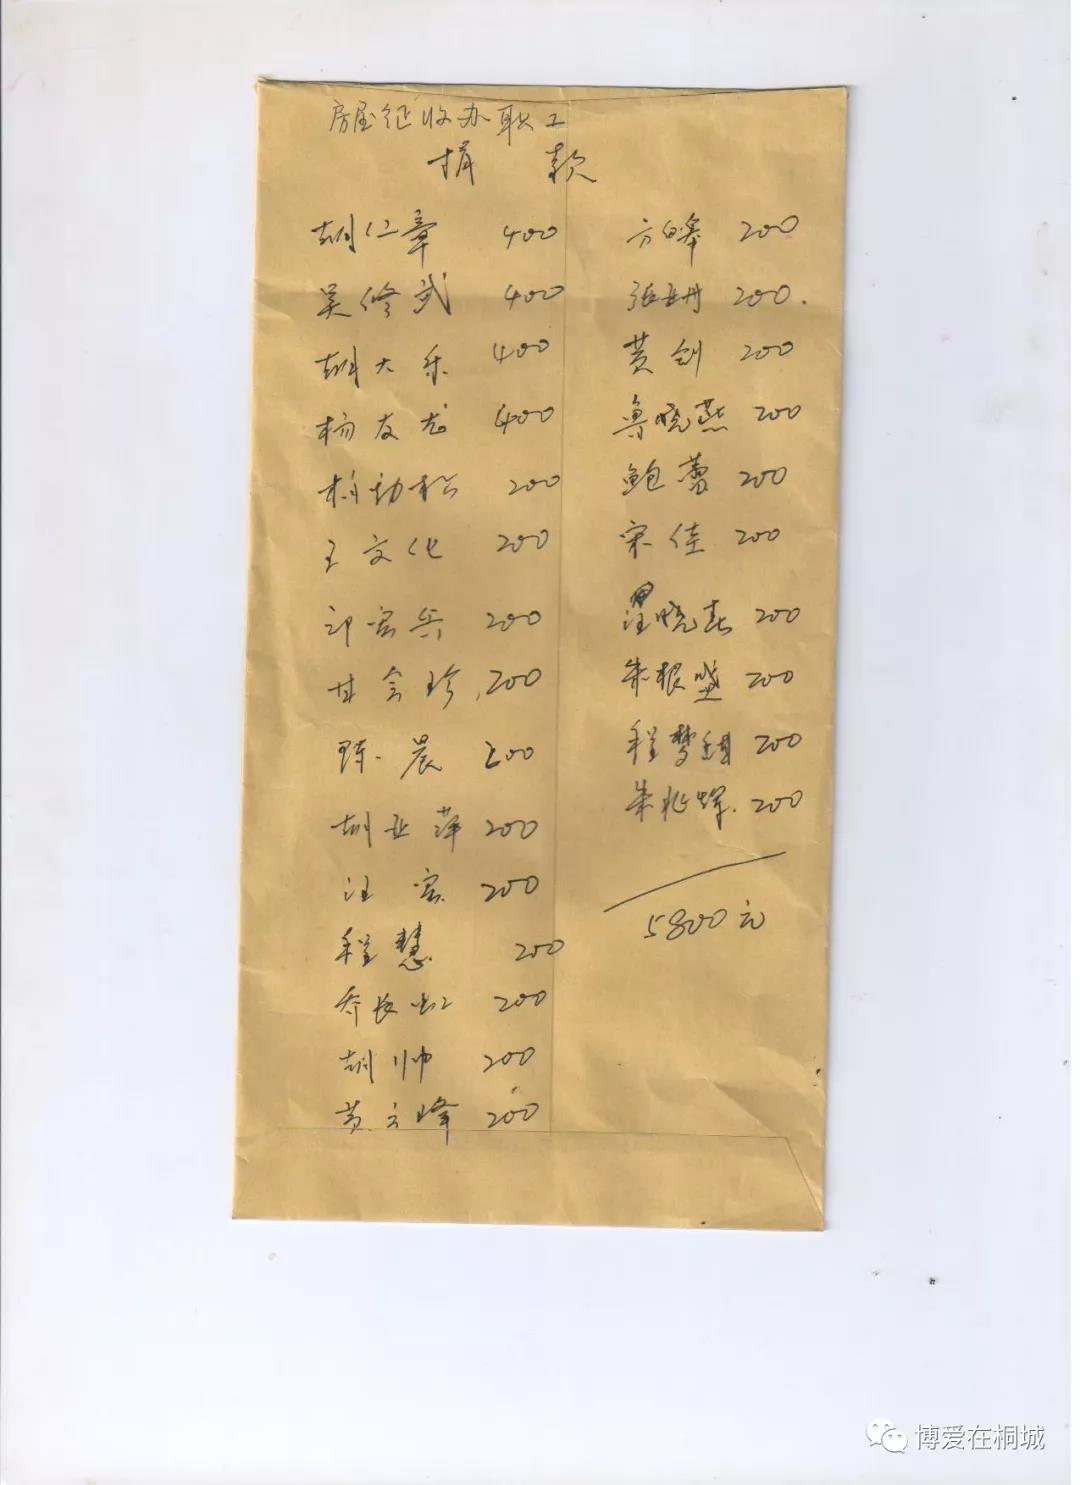 房屋征收办职工
捐 款
胡仁章 400
吴修武 400
胡大乐 400
杨友龙 400
柏劲松 200
王文化 200
200
甘会珍 200
陈晨 200
胡亚萍 200
汪宏 200
程慧 200
乔长虹 200
胡帅 200
黄立峰 200
方皞 200
张妹 200.
黄剑 200
鲁晓燕 200
鲍蕾 200
宋佳 200
晓春 200
朱根盛 200
程梦娟 200
朱兆辉. 200
5800元
博爱在桐城